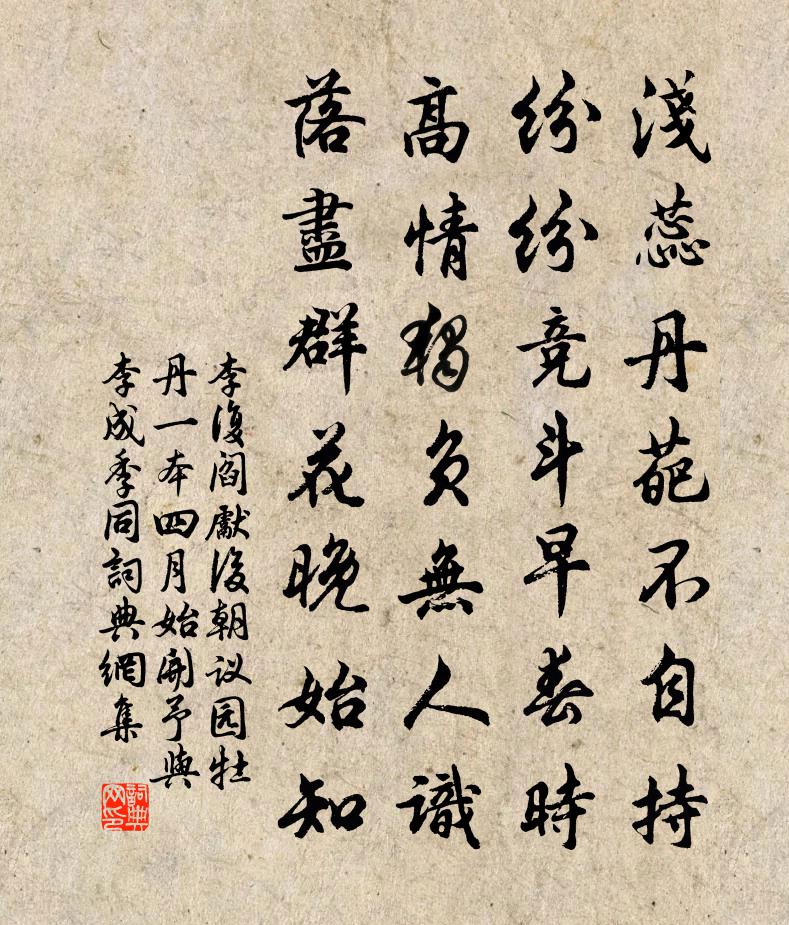 淺蕊丹葩不自持
紛紛競斗早春時
高情獨負無人識
落盡群花晚始知
李復閻獻復朝议园牡
丹一本四月始開予與
李成季同詞典網集
詞典
网印